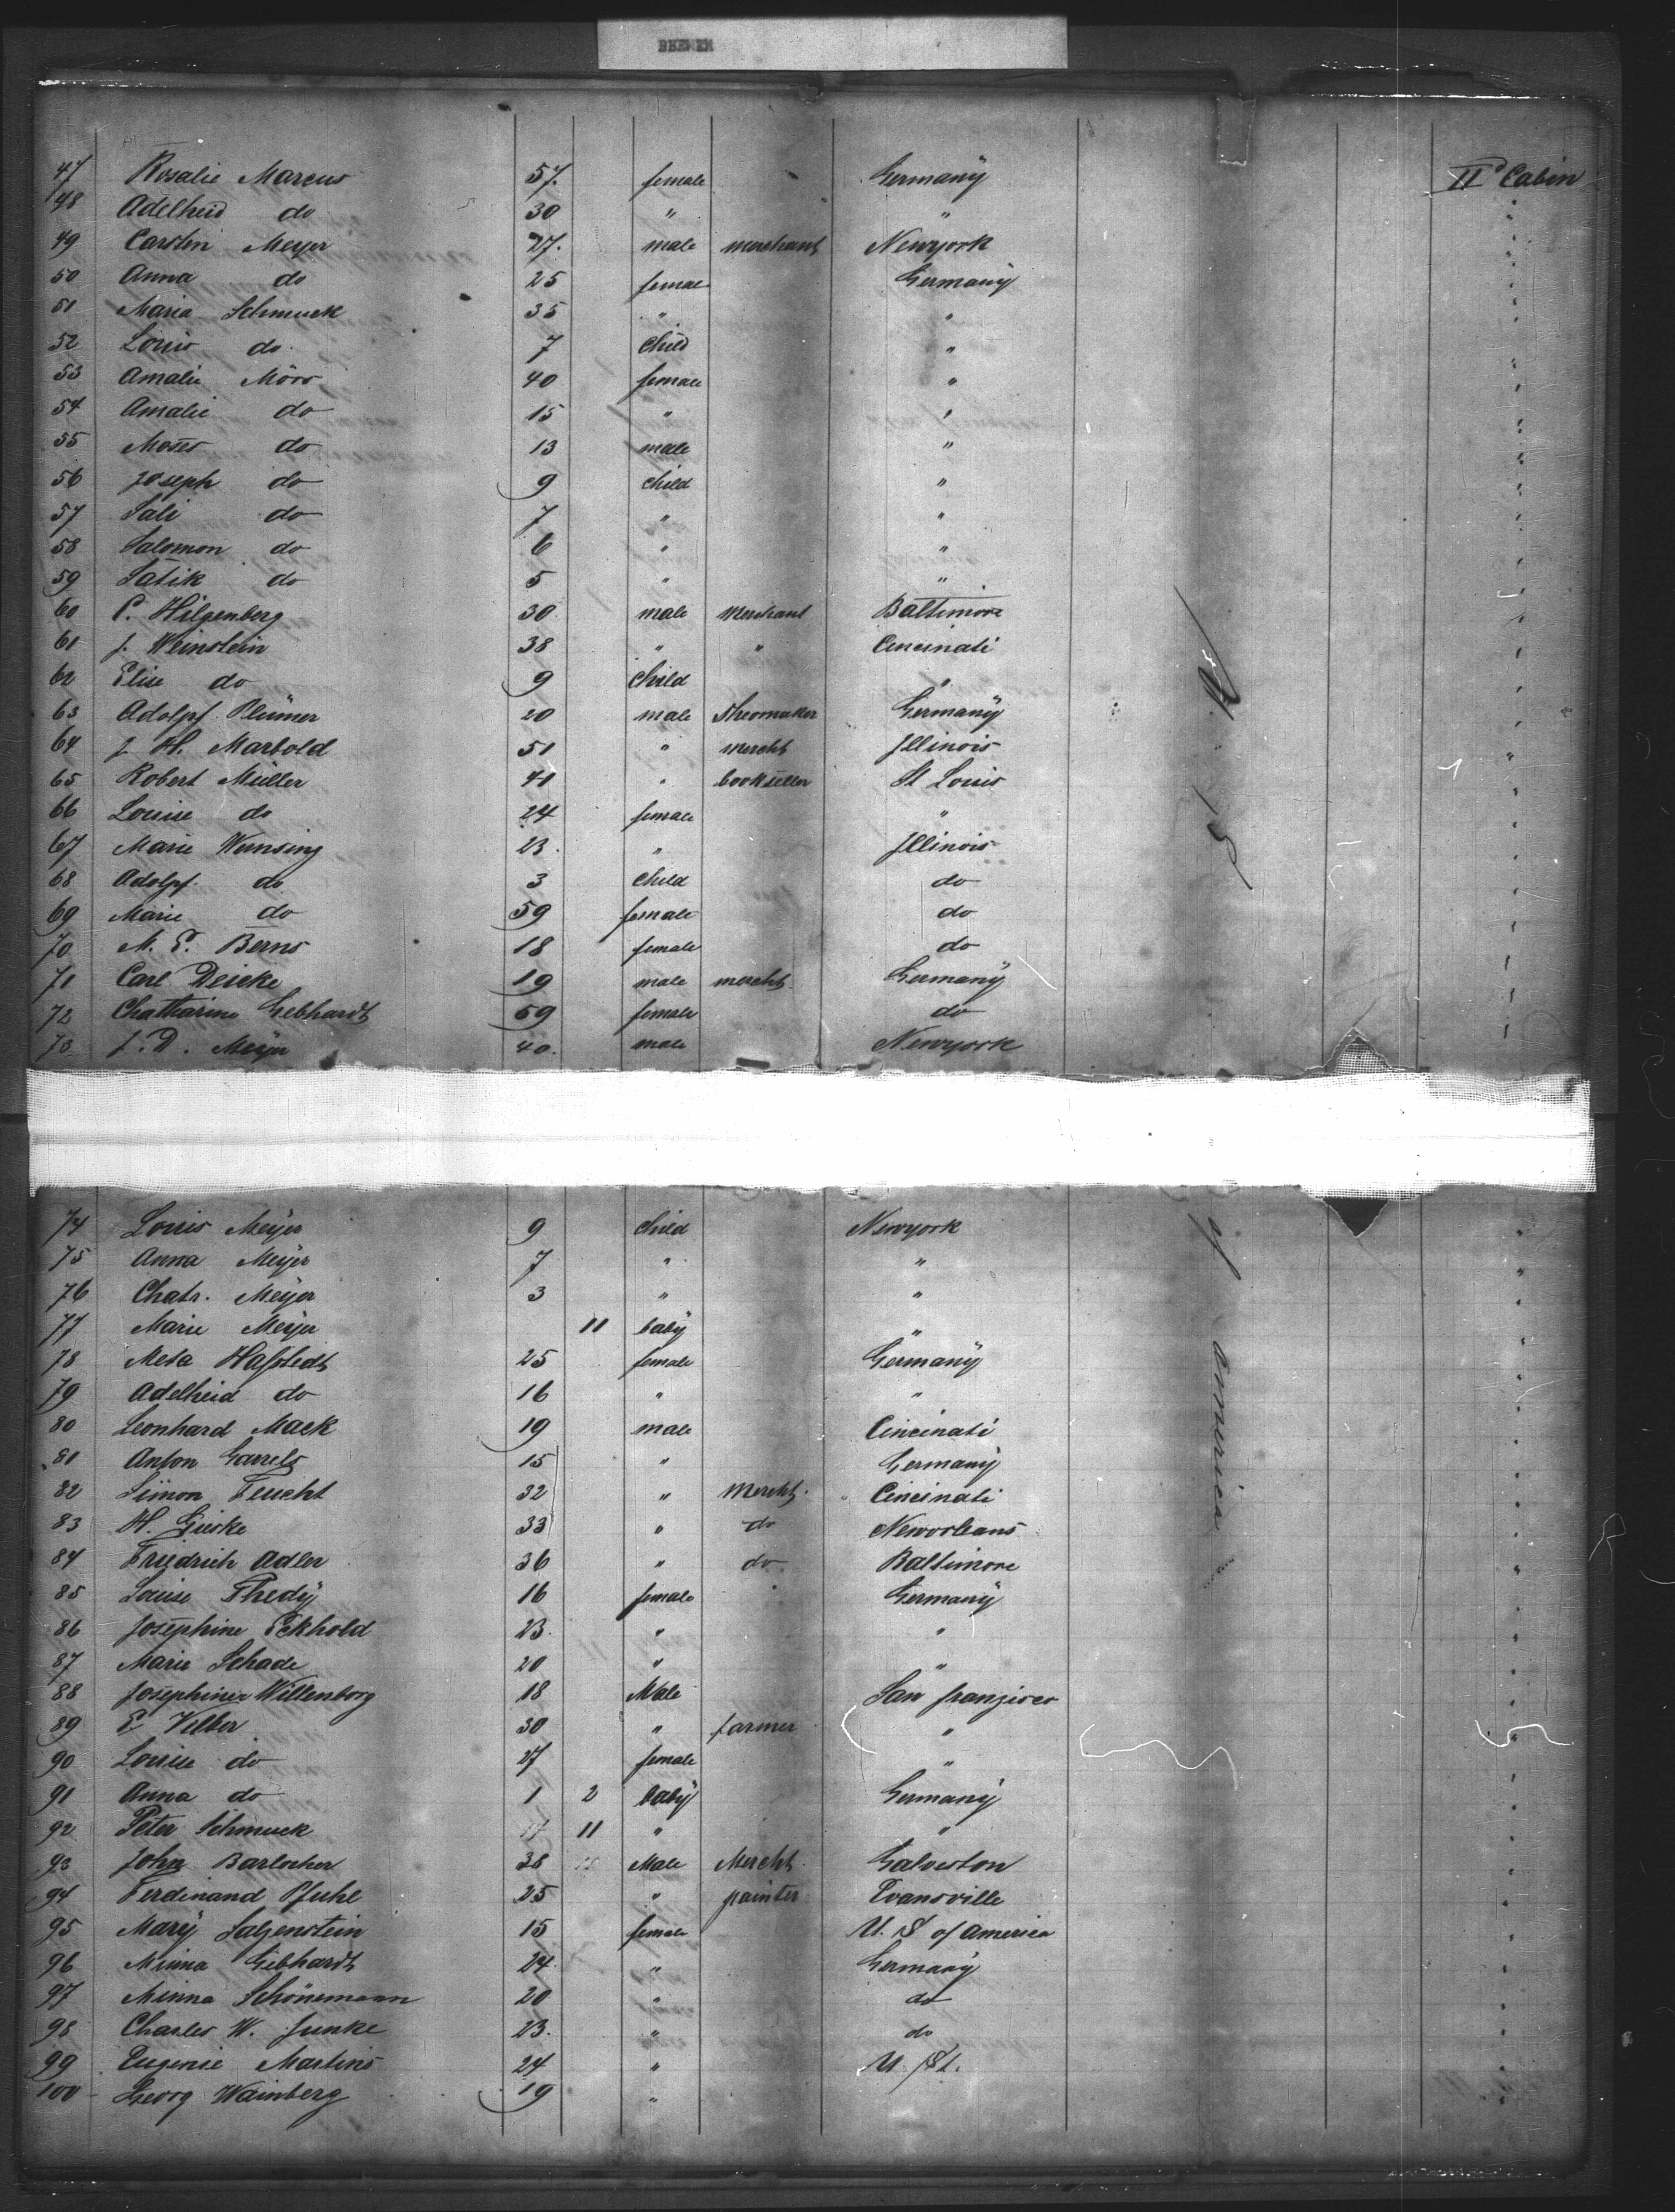 BREMEN
47 Rosalie Marcus 57. female Germany II Cabin
48 Adelheid do 30 " " "
49 Carsten Meyer 27. male merchant Newyork "
50 Anna do 25 female Germany "
51 Maria Schmuck 35 " " "
52 Louis do 7 Child " "
53 Amalie Mörs 40 female " "
54 Amalie do 15 " " "
55 Moses do 13 male " "
56 Joseph do 9 child " "
57 Sali do 7 " " "
58 Salomon do 6 " " "
59 Satik do 5 " " "
60 C. Hilgenberg 30 male Merchant Baltimore "
61 J. Weinstein 38 " " Cincinati "
62 Elise do 9 Child " "
63 Adolpf Plümer 20 male Sheomaker Germany "
64 J. H. Marbold 51 " mercht Illinois "
65 Robert Müller 41 " bookseller St Louis "
66 Louise do 24 female " "
67 Marie Wensing 23. " Illinois "
68 Adolpf. do 3 Child do "
69 Marie do 59 female do "
70 M. E. Berns 18 female do "
71 Carl Deicke 19 male mercht. Germany "
72 Chatharine Gebhardt 59 female do "
73 J. D. Meyer 40. male Newyork "
U. S. of america
74 Louis Meyer 9 Child Newyork "
75 Anna Meyer 7 " " "
76 Chatr. Meyer 3 " " "
77 Marie Meyer 11 baby " "
78 Meta Haßstedt 25 female Germany "
79 Adelheid do 16 " " "
80 Leonhard Mack 19 male Cincinati "
81 Anton Garrels 15 " Germany "
82 Simon Feucht 32 " Mercht. Cincinati "
83 H. Gieske 33 " do Neworleans "
84 Friedrich Adler 36 " do Baltimore "
85 Louise Thedy 16 female Germany "
86 Josephine Eckhold 23. " " "
87 Marie Schade 20 " " "
88 Josephiner Willenborg 18 Male San franzisco "
89 E Velber 30 " farmer " "
90 Louise do 27 female " "
91 Anna do 1 2 baby Germany "
92 Peter Schmuck 11 " " "
93 John Barlocher 38 Male Mercht. Galveston "
94 Ferdinand Pfuhl 25 " painter Evansville "
95 Mary Salzenstein 15 female U. S of America "
96 Minna Gebhardt 24. " Germany "
97 Minna Schönemann 20 " do "
98 Charles W. Junke 23. " do "
99 Eugenie Martins 24 " U. St. "
100 Georg Wainberg 19 " "